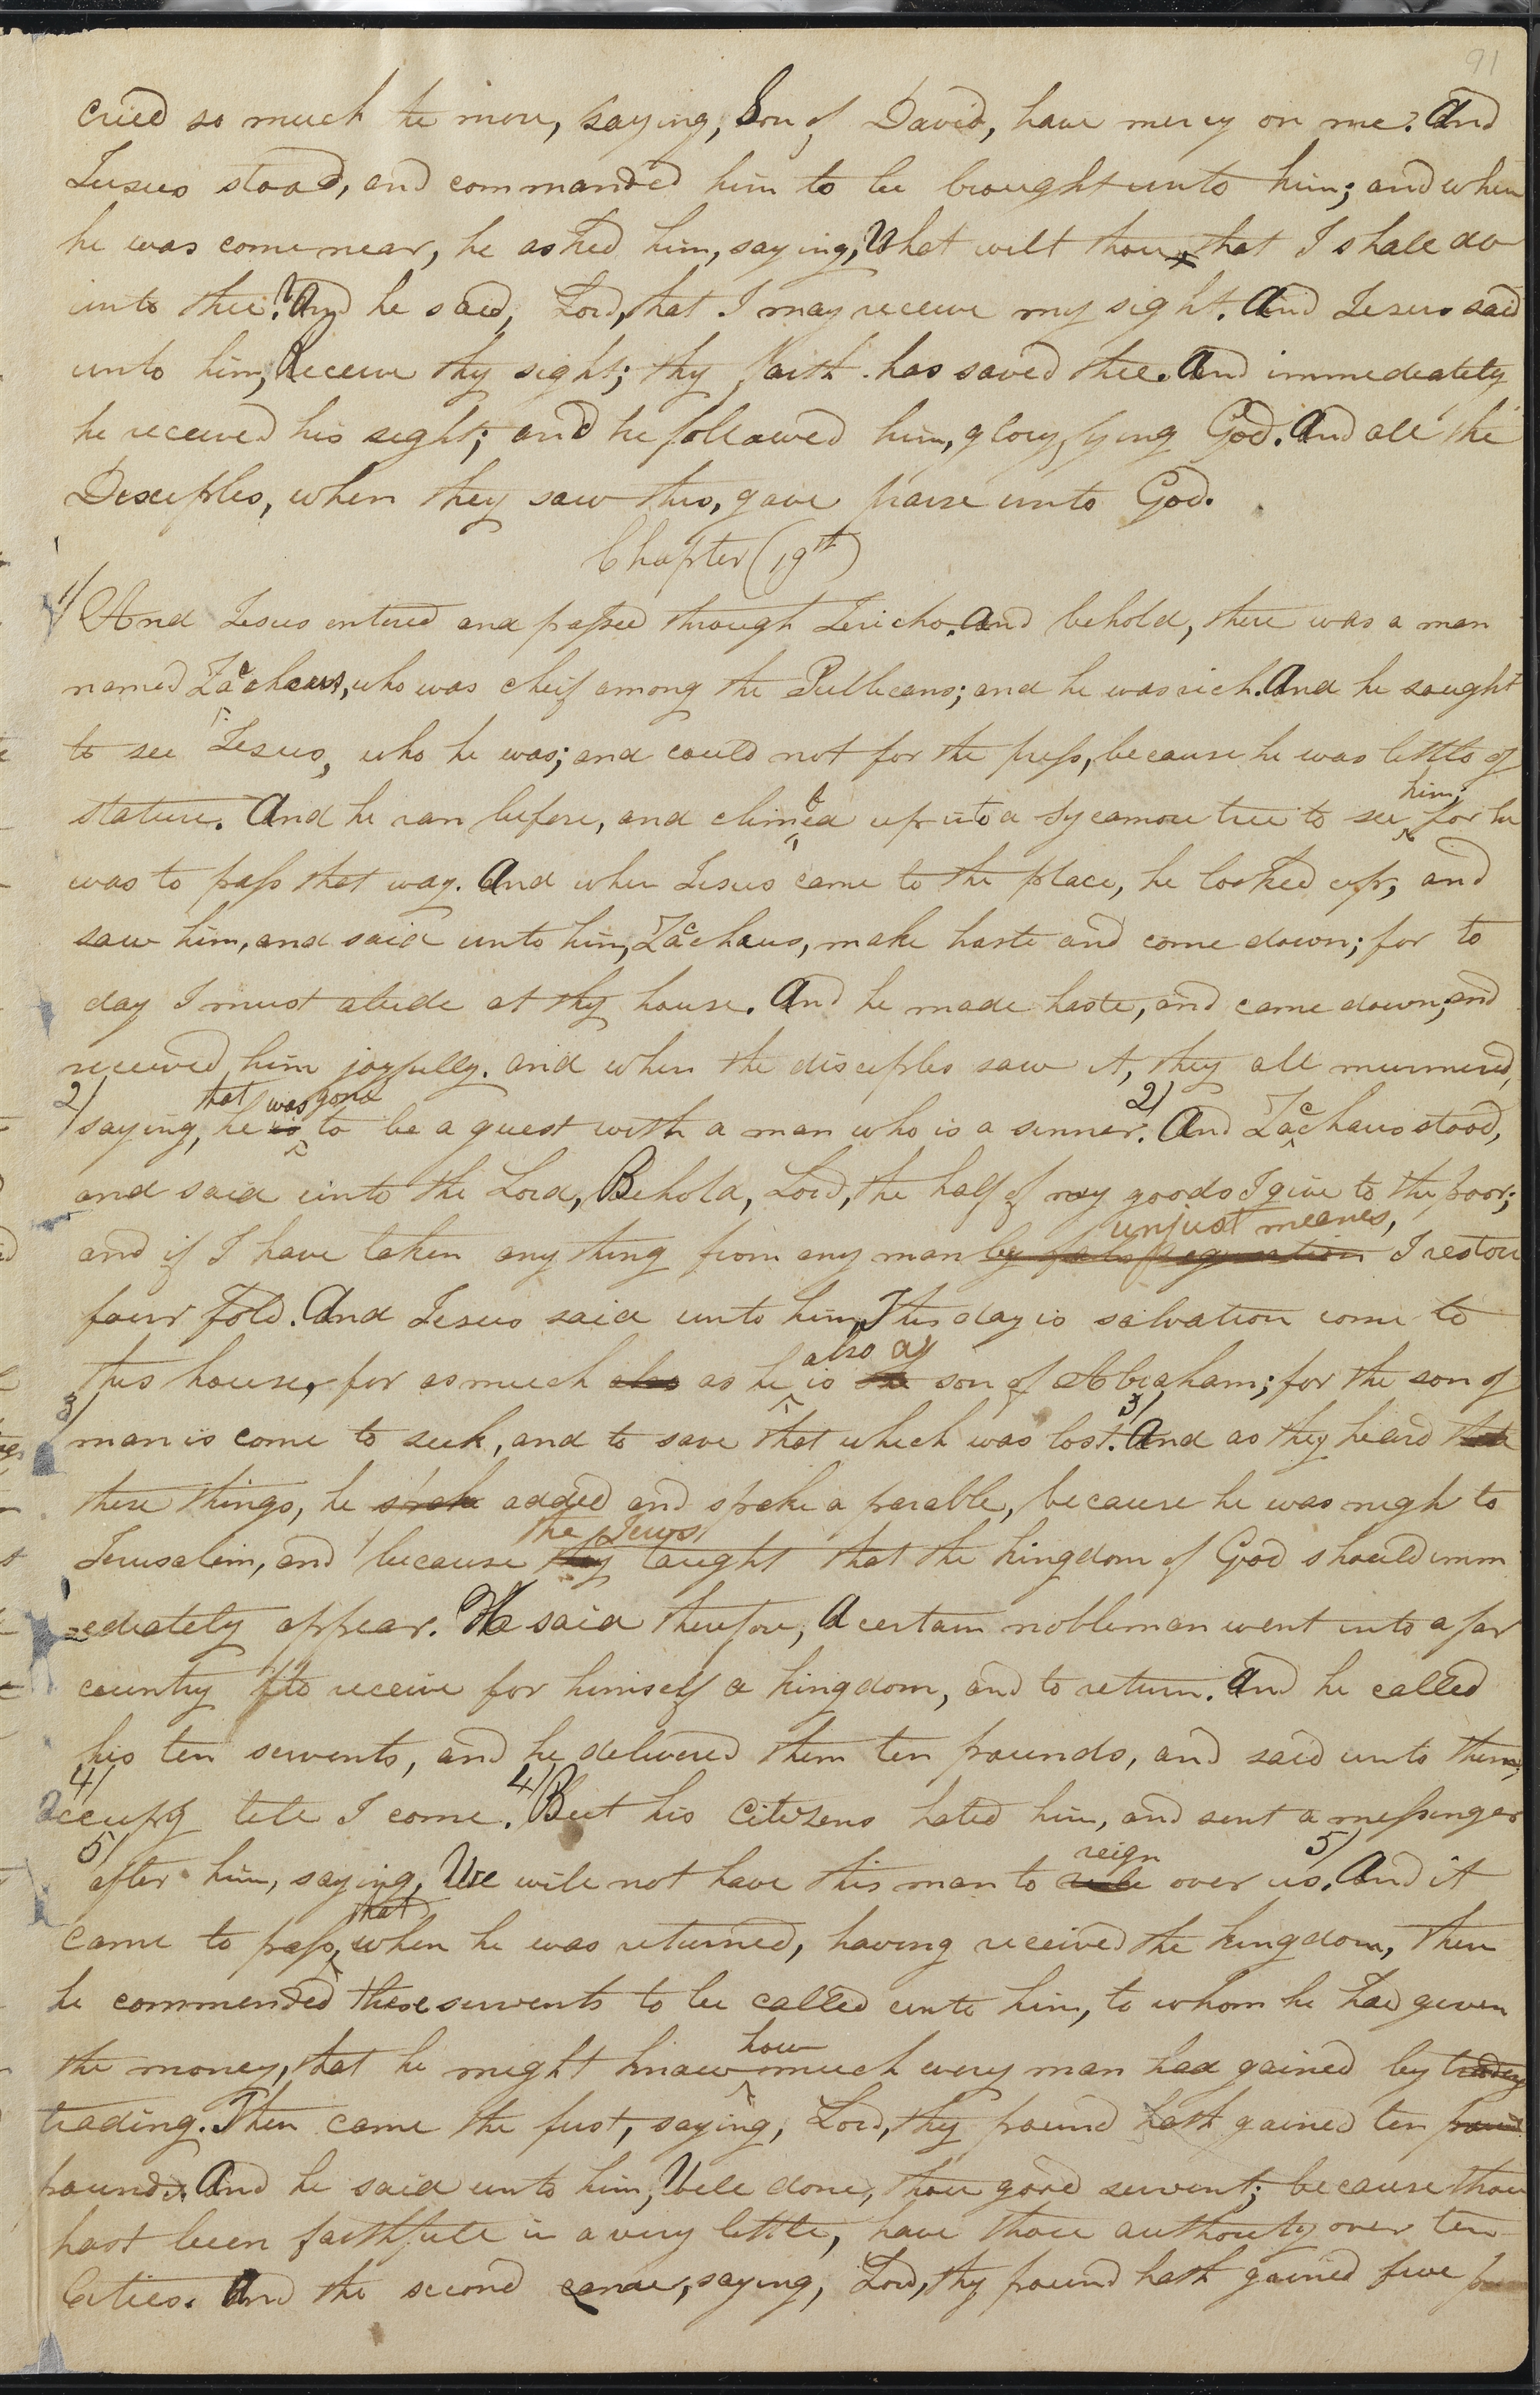 91
cried so much the more, saying, Son of David, have mercy on me. And
Jesus stood, and commanded him to be brought unto him; and when
he was come near, he asked him, saying, What wilt thou that I shall do
unto thee? And he said, Lord, that I may receive my sight. And Jesus said
unto him, Receive thy sight; thy faith has saved thee. And immediately
he received his sight; and he followed him, glorifying God. And all the
Desciples, when they saw this, gave praise unto God.
Chapter (19th)
1/ And Jesus entered and passed through Jericho. And behold, there was a man
named Zaccheus, who was cheif among the Publicans; and he was rich. And he sought
to see Jesus, who he was; and could not for the press, because he was little of
him;
stature. And he ran before, and climbed up into a sycamore tree to see for he
was to pass that way. And when Jesus came to the place, he looked up, and
saw him, and said unto him, Zaccheus, make haste and come down; for to
day I must abide at thy house. And he made haste, and came down, and
received him joyfully. and when the disciples saw it, they all murmured,
2/ that was gone 2/
saying, he is to be a guest with a man who is a sinner. And Zaccheus stood,
and said unto the Lord, Behold, Lord, the half of my goods I give to the poor;
unjust meanes,
and if I have taken any thing from any man by false accusation I restore
four fold. And Jesus said unto him, This day is salvation come to
also a
this house, for as much also as he is the son of Abraham; for the son of
3/ 3/
man is come to seek, and to save that which was lost. And as they heard
these things, he spake added and spake a parable, because he was nigh to
the Jews
Jerusalem, and because they taught that the kingdom of God should imm
=ediately appear. He said therefore, A certain nobleman went into a far
country to receive for himself a kingdom, and to return. And he called
his ten servents, and he delivered them ten pounds, and said unto them,
4/ 4/
Occupy till I come. But his Citizens hated him, and sent a messenger
5/ reign 5/
after him, saying, We will not have this man to rule over us. And it
that
came to pass, when he was returned, having received the kingdom, then
he commended these servents to be called unto him, to whom he had given
how
the money, that he might know much every man had gained by trading
trading. Then came the first, saying, Lord, thy pound hath gained ten pound
pounds. And he said unto him, Well done, thou good servent; because thou
hast been faithfull in a very little, have thou authority over ten
Cities. And the second came, saying, Lord, thy pound hath gained five